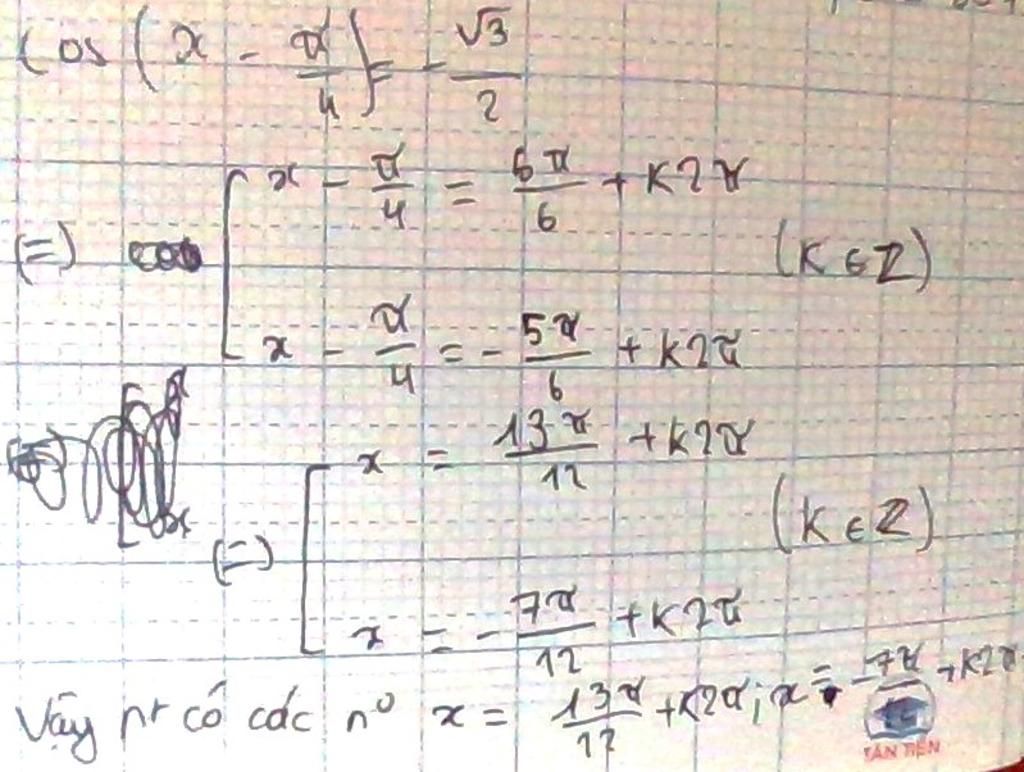 cos (x - π/4) = - √3/2
(=) [ x - π/4 = 5π/6 + K2π
(K ∈ Z)
x - π/4 = - 5π/6 + K2π
(=) [ x = 13π/12 + K2π
(K ∈ Z)
x = - 7π/12 + K2π
Vậy pt có các nº x = 13π/12 + K2π; x = -7π + K2π
TÂN TIẾN